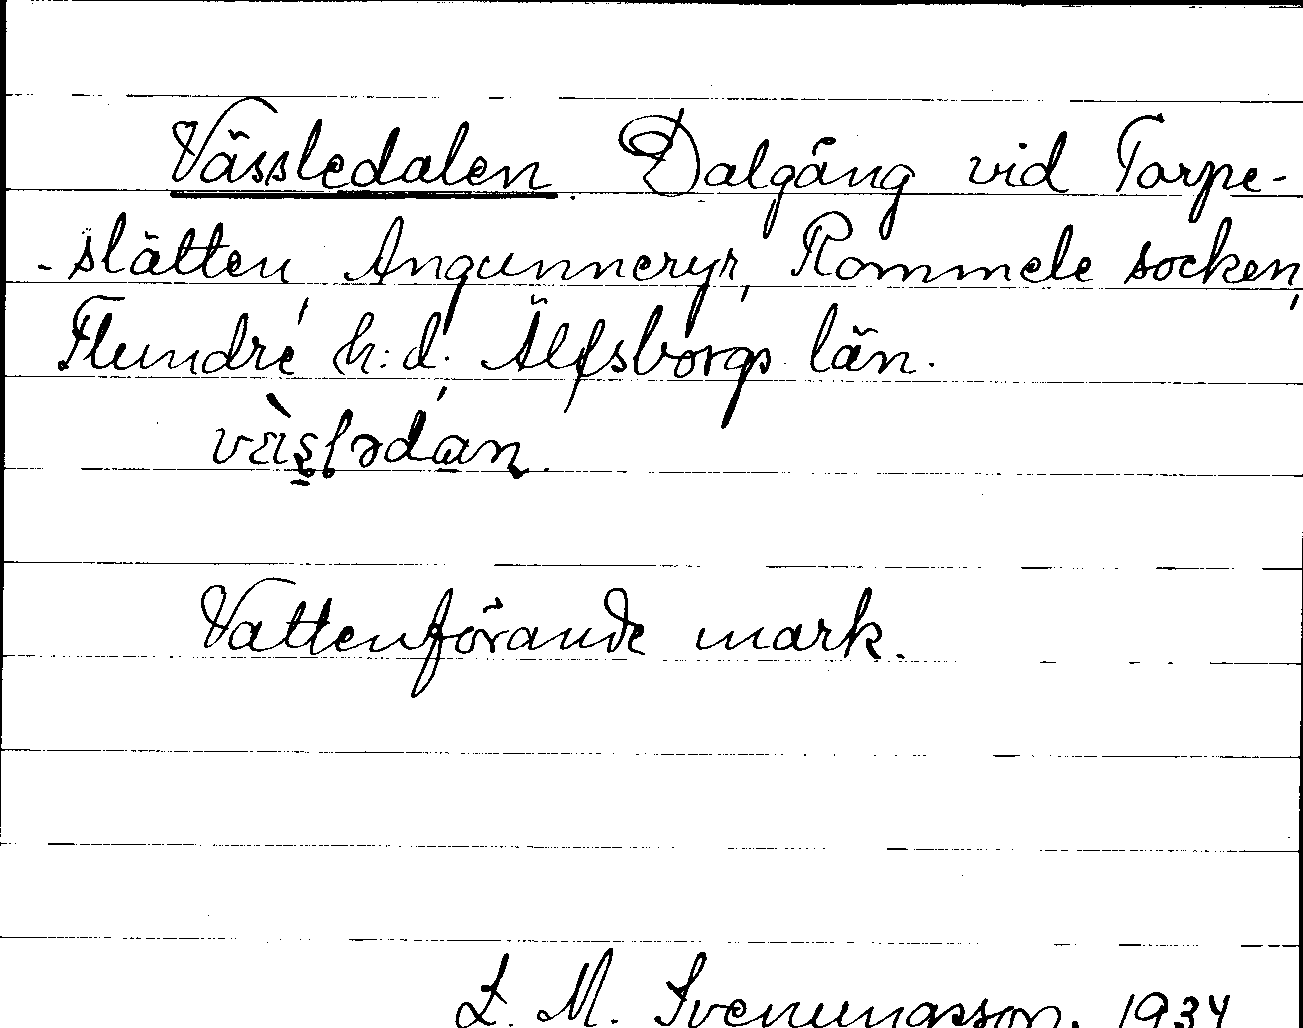 Vässledalen. Dalgång vid Torpe-
-slätten, Angunneryr, Rommele socken,
Flundre h:d. Älfsborgs län.
Vattenförande mark.
L. M. Svenungsson. 1934